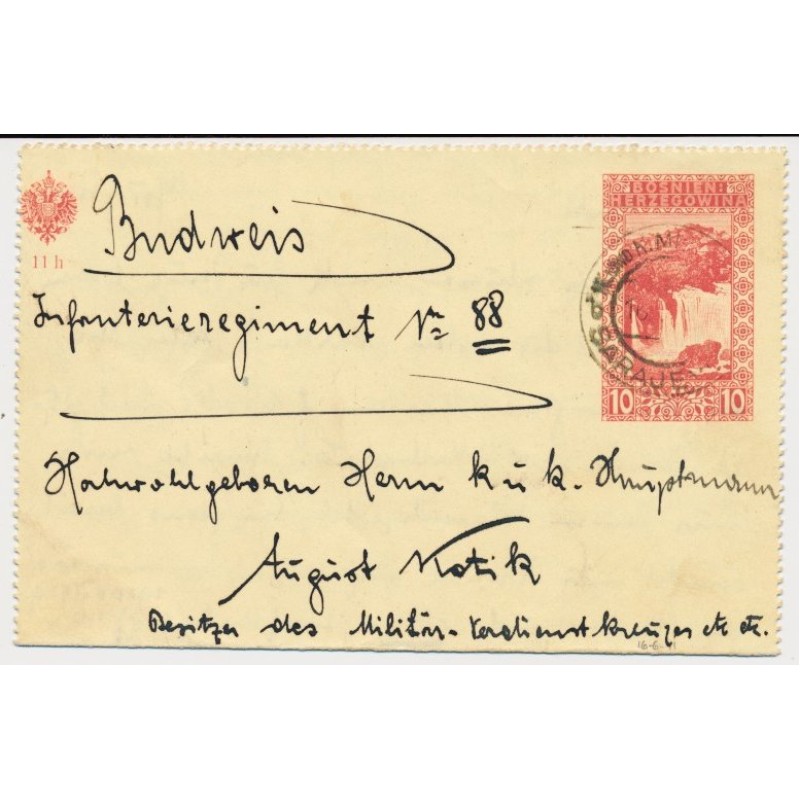 BOSNIEN:
HERZEGOWINA
11 h
Budweis
Infanterieregiment Nr 88
SARAJE
10 10
Hochwohlgeboren Herrn k u k. Hauptmann
August Kotik
Besitzer des Militär-Verdienstkreuzes etc etc.